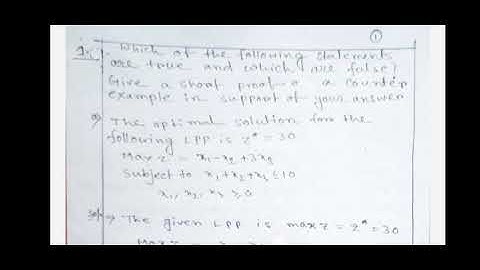 ①
Q1. Which of the following statements
are true and which are false?
Give a short proof or a counter
example in support of your answer
a) The optimal solution for the
following LPP is z* = 30
Max z = x₁ - x₂ + 3x₃
Subject to x₁ + x₂ + x₃ ≤ 10
x₁, x₂, x₃ ≥ 0
Solⁿ → The given LPP is max z = z* = 30
Max z